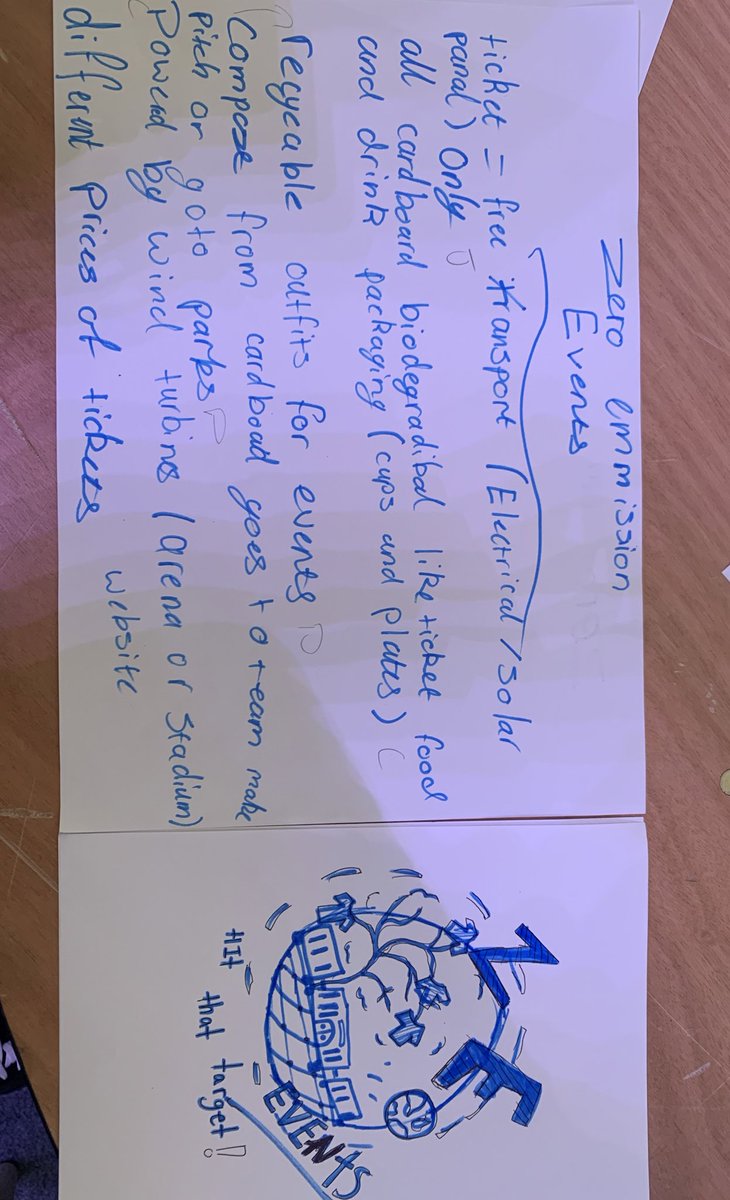 Zero emmission
Events
ticket = free transport (Electrical/solar
panal) Only
all cardboard biodegradibal like ticket food
and drink packaging (cups and plates)
recycable outfits for events
Compose from cardboad goes to team make
pitch or goto parks
Powered by wind turbines (arena or stadium)
website
different prices of tickets
Z E
EVENTS
HIt that target!